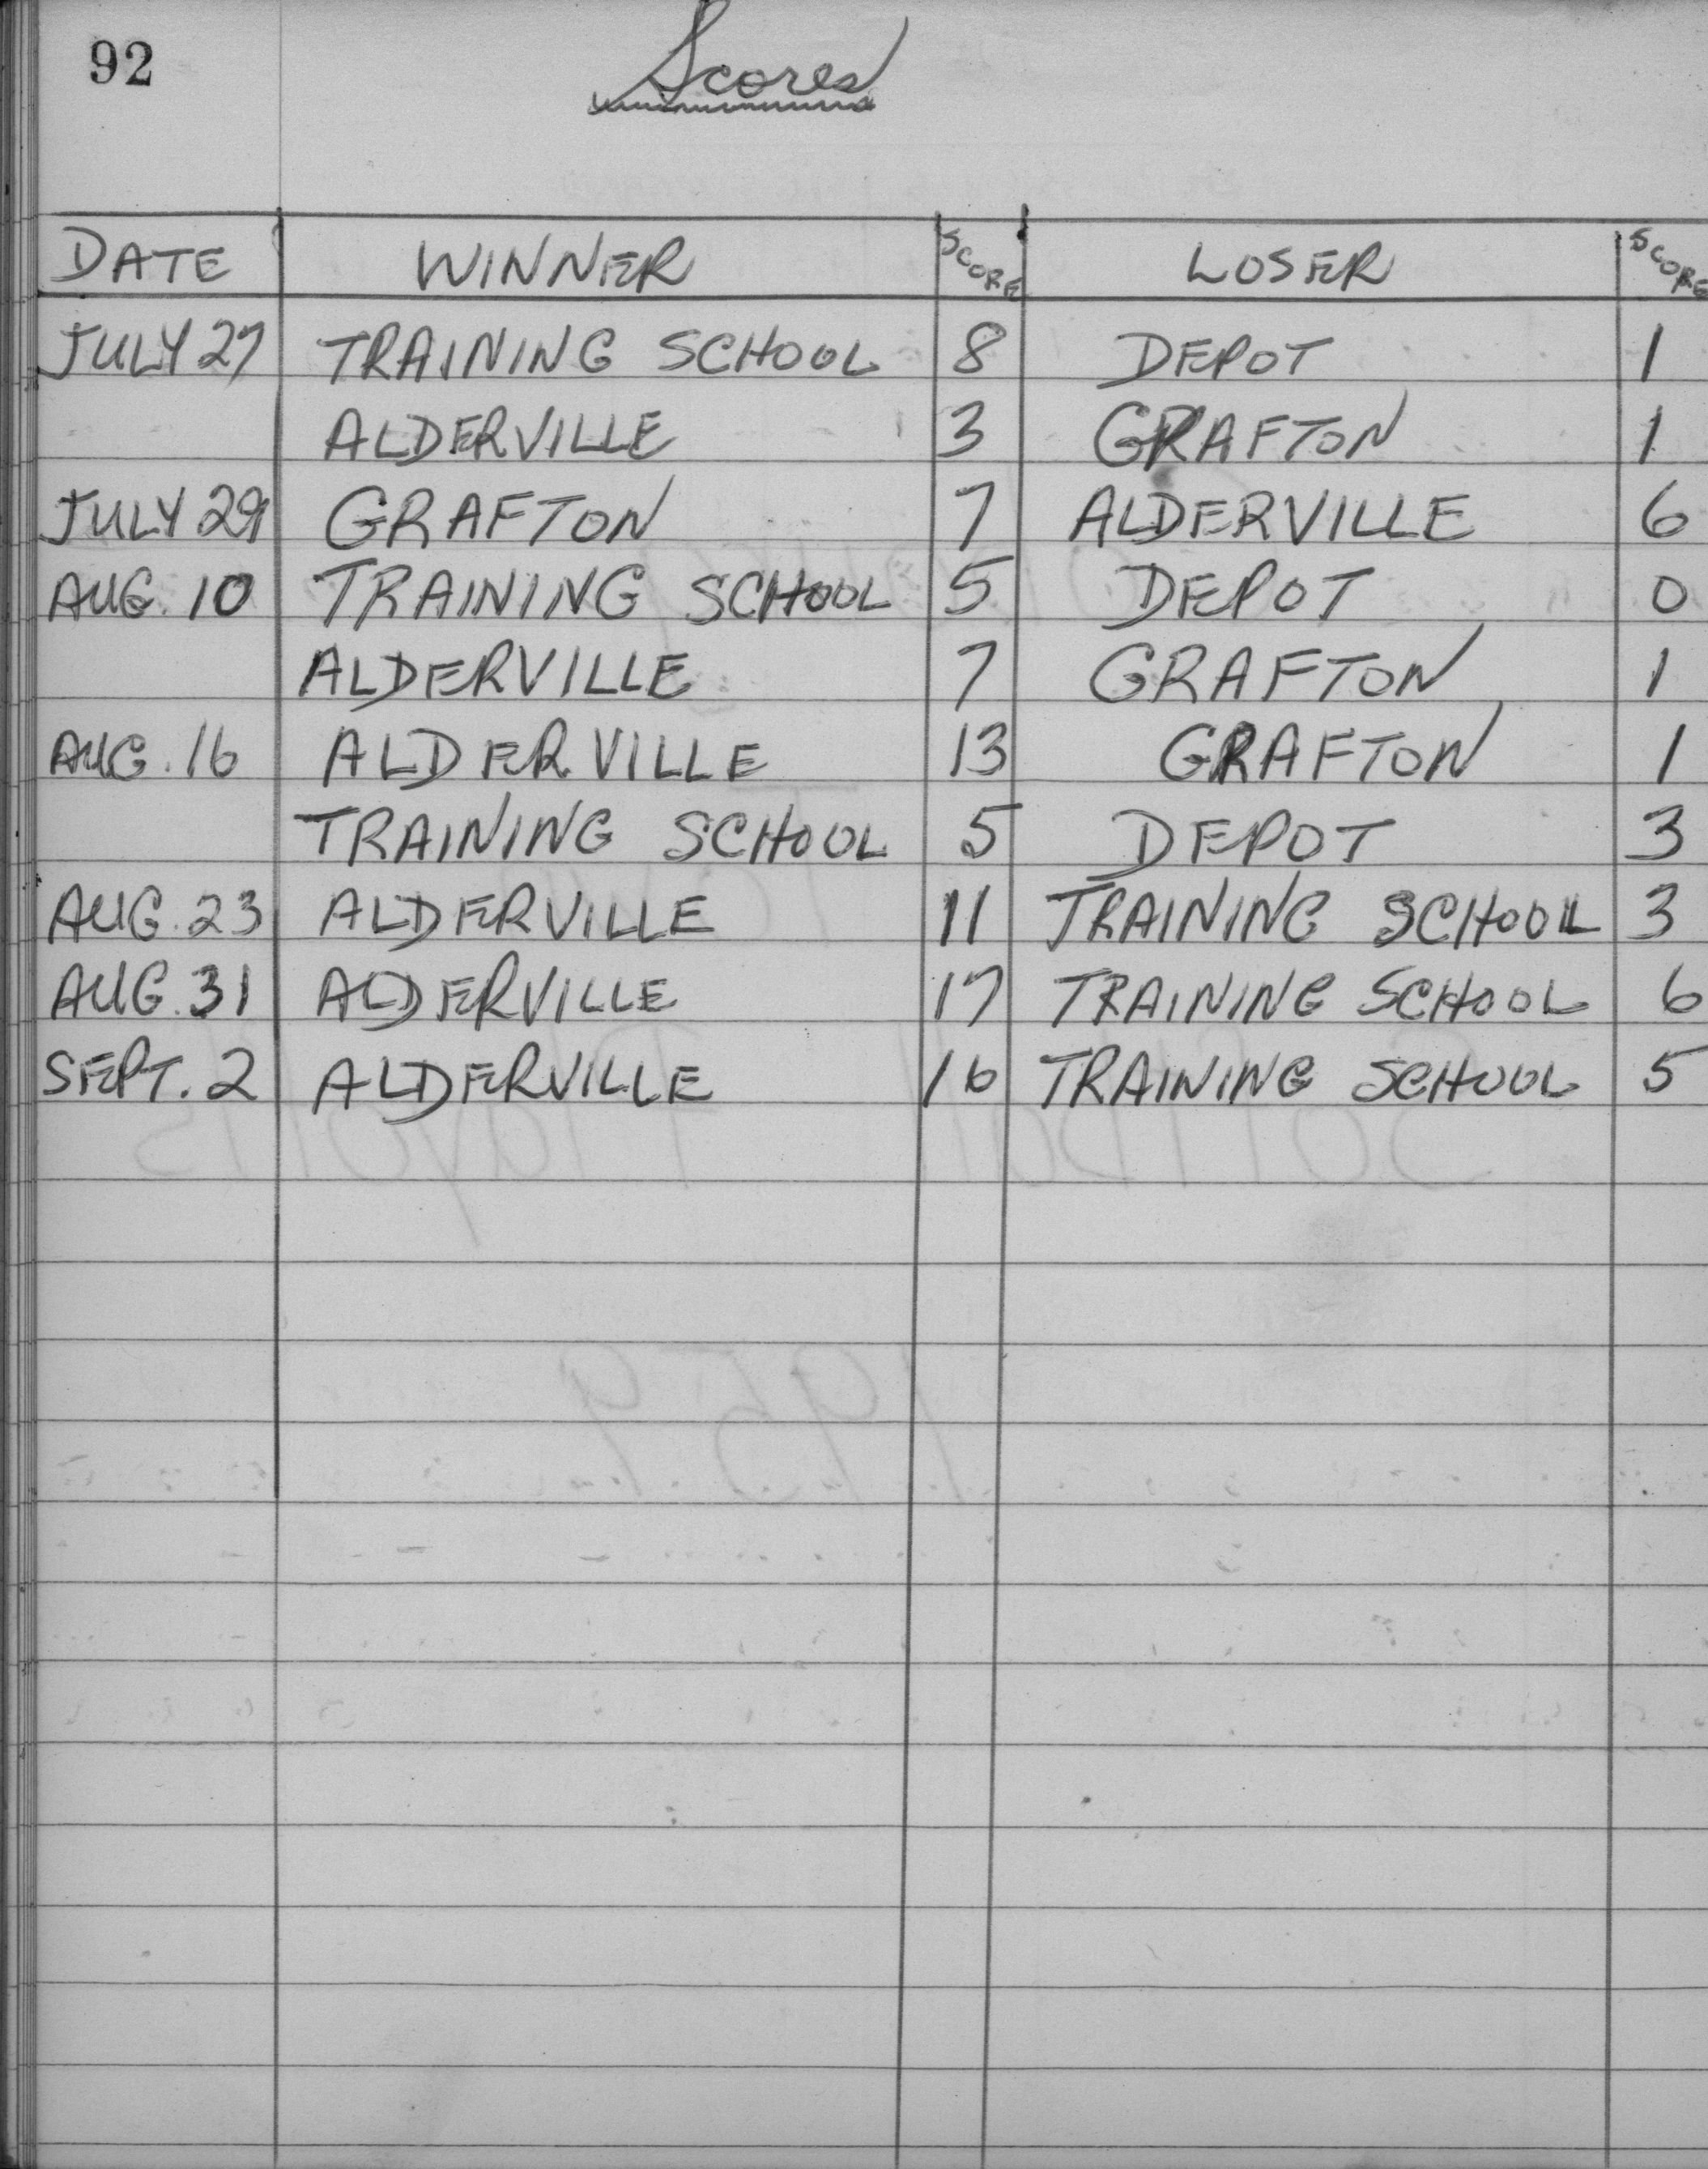 92
Scores
DATE WINNER SCORE LOSER SCORE
JULY 27 TRAINING SCHOOL 8 DEPOT 1
ALDERVILLE 3 GRAFTON 1
JULY 29 GRAFTON 7 ALDERVILLE 6
AUG. 10 TRAINING SCHOOL 5 DEPOT 0
ALDERVILLE 7 GRAFTON 1
AUG. 16 ALDERVILLE 13 GRAFTON 1
TRAINING SCHOOL 5 DEPOT 3
AUG. 23 ALDERVILLE 11 TRAINING SCHOOL 3
AUG. 31 ALDERVILLE 17 TRAINING SCHOOL 6
SEPT. 2 ALDERVILLE 16 TRAINING SCHOOL 5